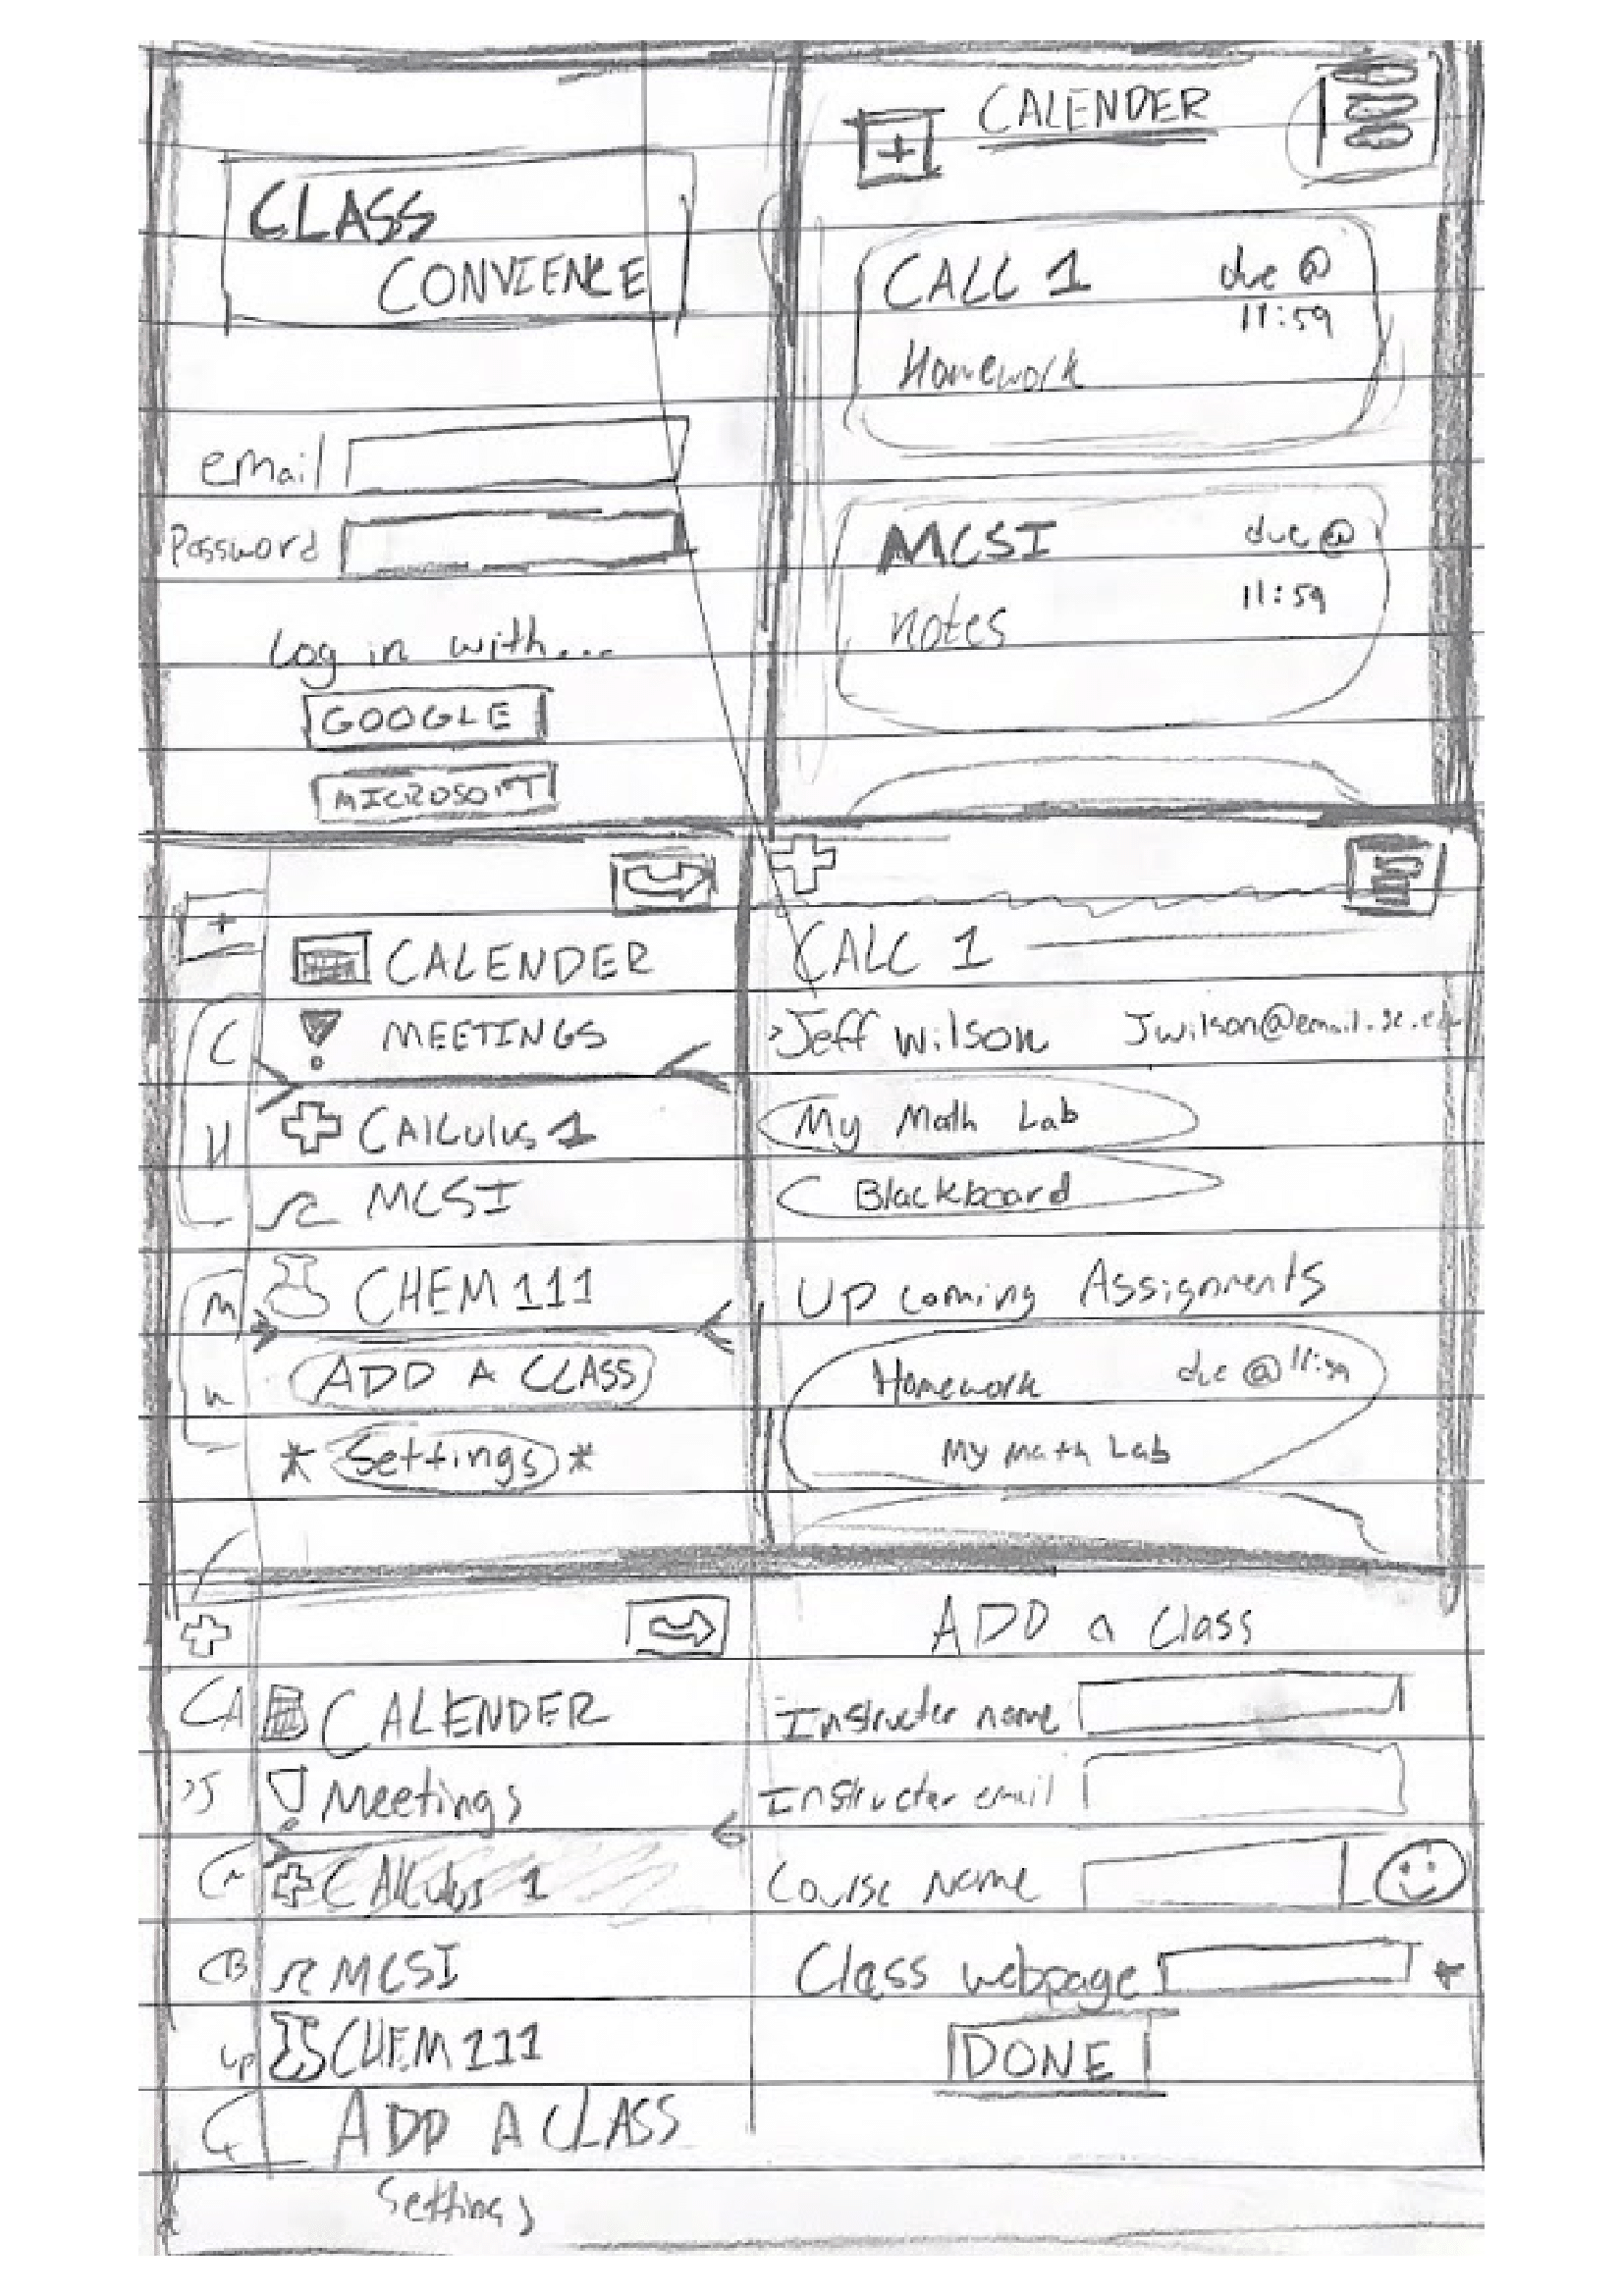 CLASS
CONVIENCE
email
Password
Log in with...
GOOGLE
MICROSOFT
+ CALENDER
CALL 1 due @
11:59
Homework
MCSI due @
11:59
notes
+
CALENDER
C MEETINGS
H CAlCulus 1
MCSI
M CHEM 111
ADD A CLASS
* Settings *
CALC 1
>Jeff Wilson
My Math Lab
Blackboard
Up coming Assignments
Homework due @ 11:59
My Math Lab
CA CALENDER
>J Meetings
CAlCulus 1
MCSI
up CHEM 111
ADD A CLASS
Settings
ADD a Class
Instructer name
Instructer email
Course Name
Class webpage *
DONE